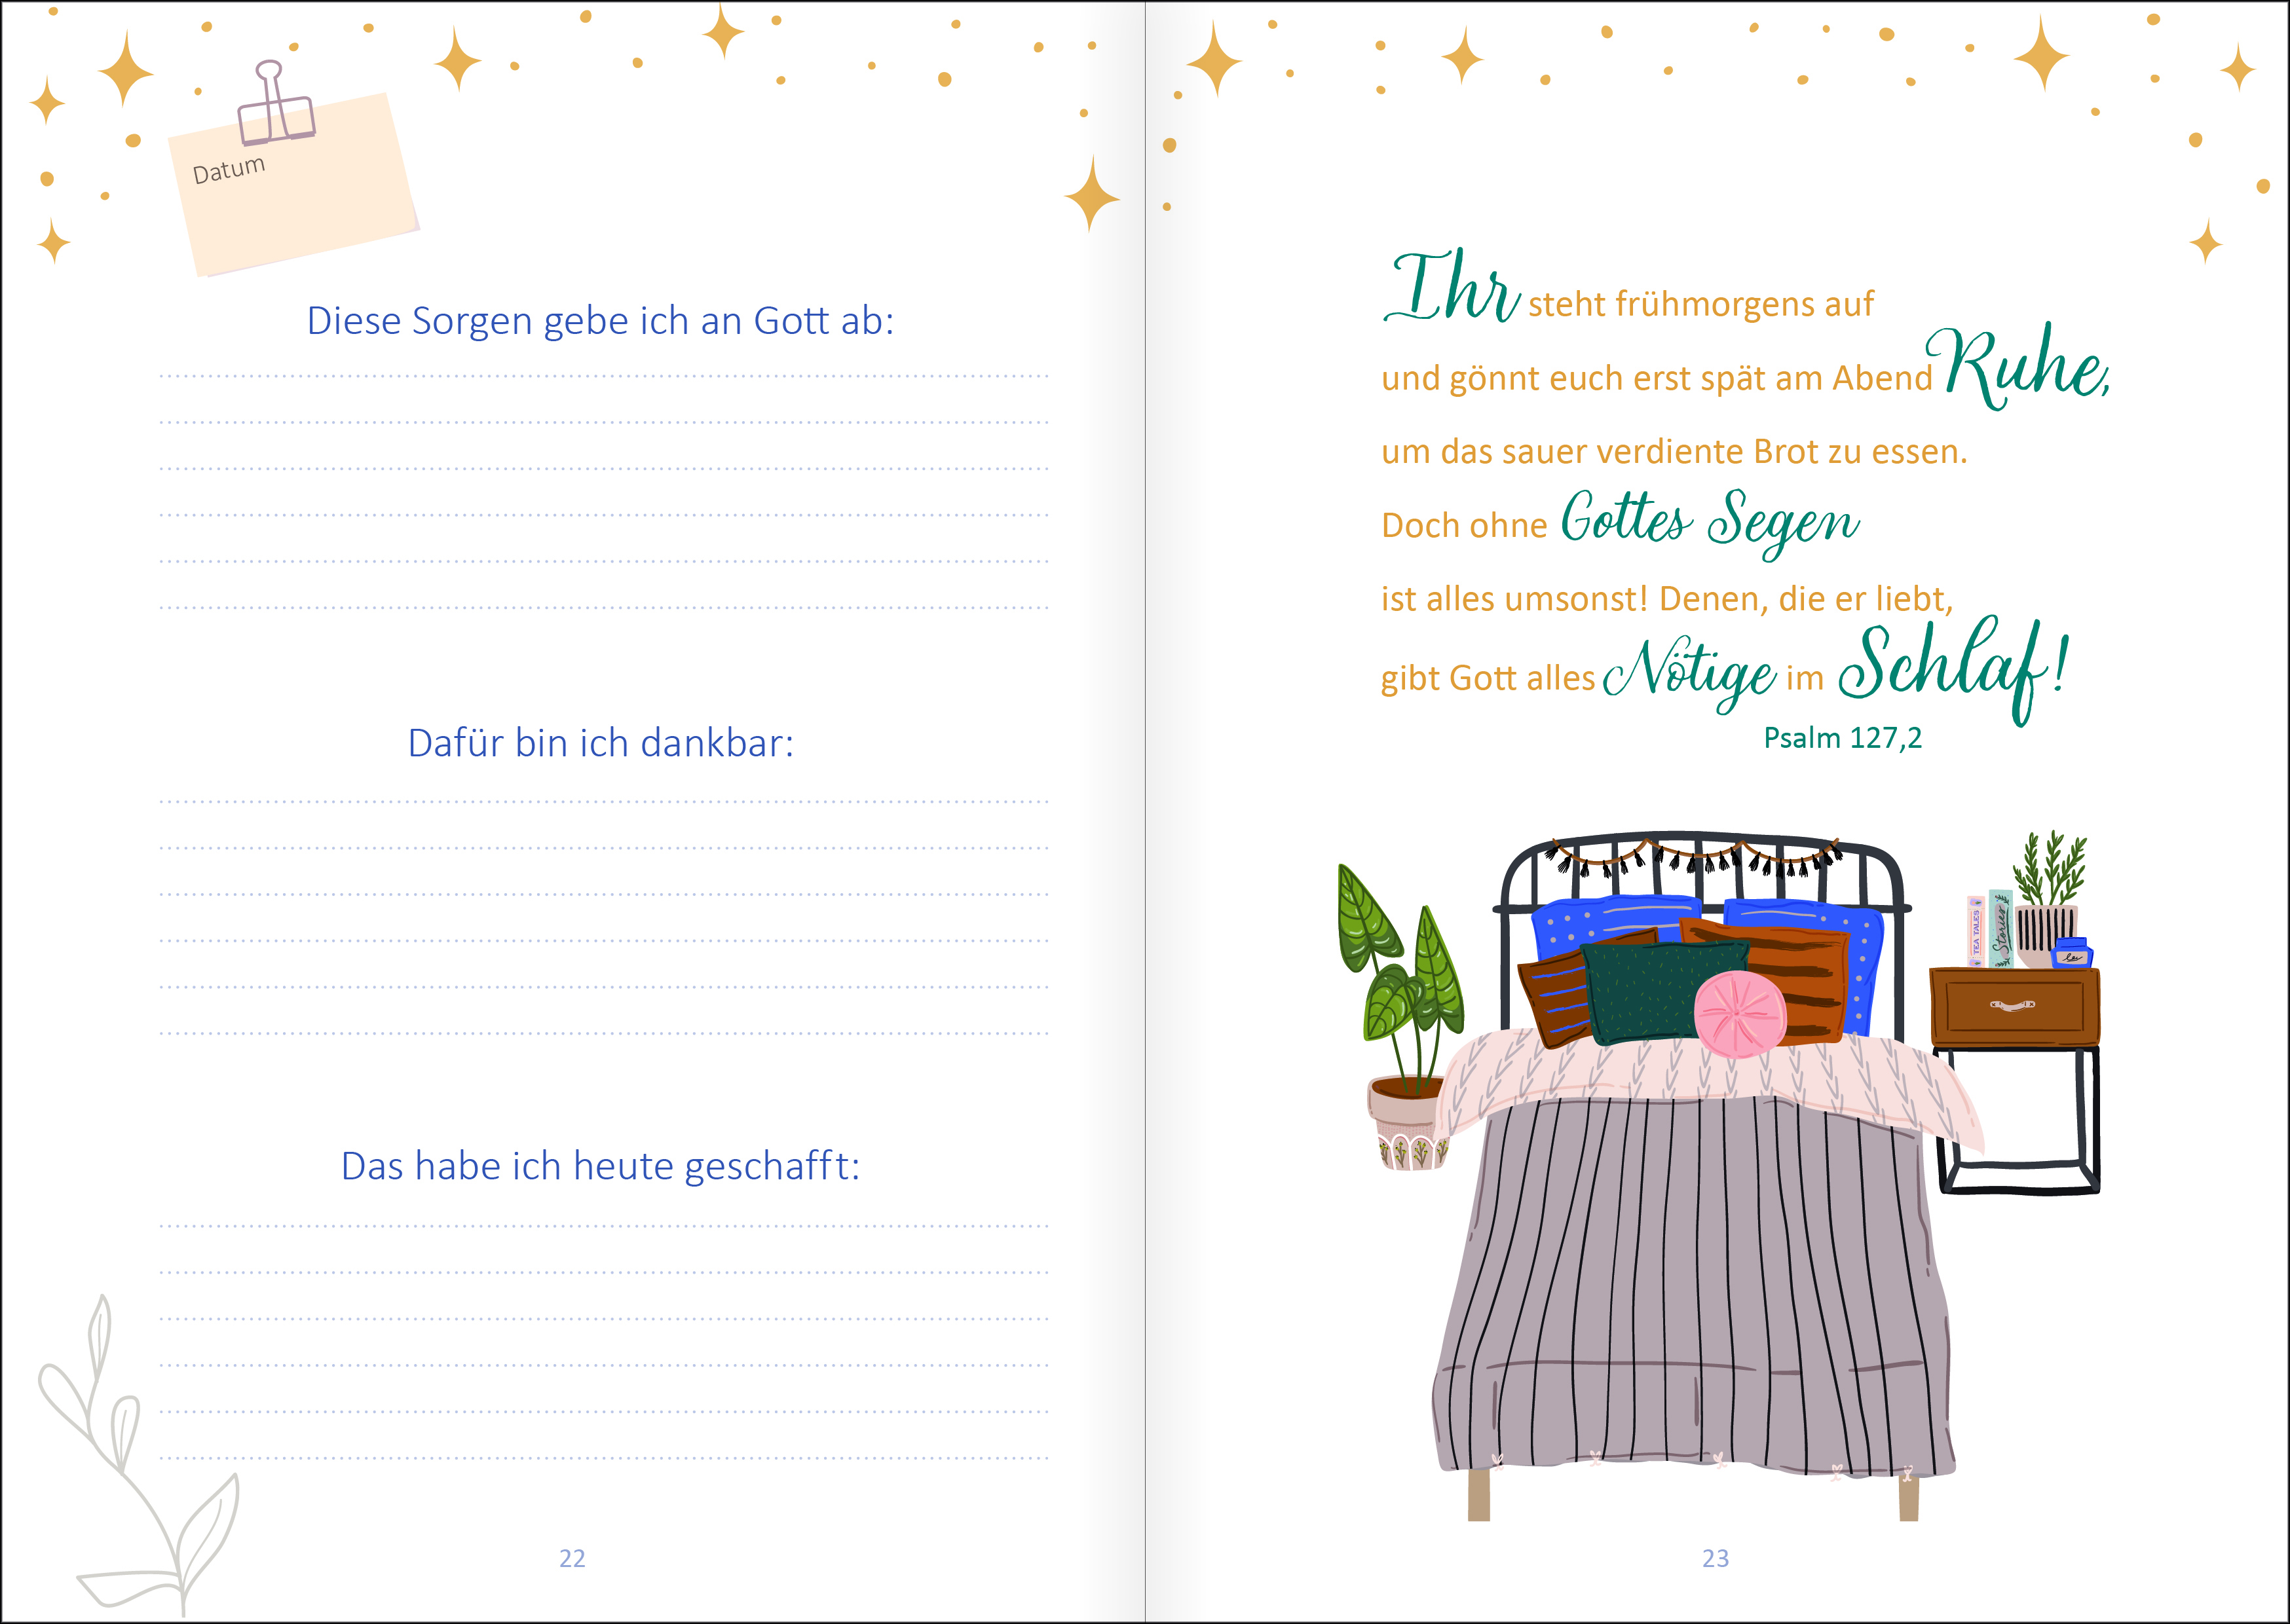 Datum
Diese Sorgen gebe ich an Gott ab:
Dafür bin ich dankbar:
Das habe ich heute geschafft:
22
Ihr steht frühmorgens auf
und gönnt euch erst spät am Abend Ruhe,
um das sauer verdiente Brot zu essen.
Doch ohne Gottes Segen
ist alles umsonst! Denen, die er liebt,
gibt Gott alles Nötige im Schlaf!
Psalm 127,2
TEA TALES
Stories
23